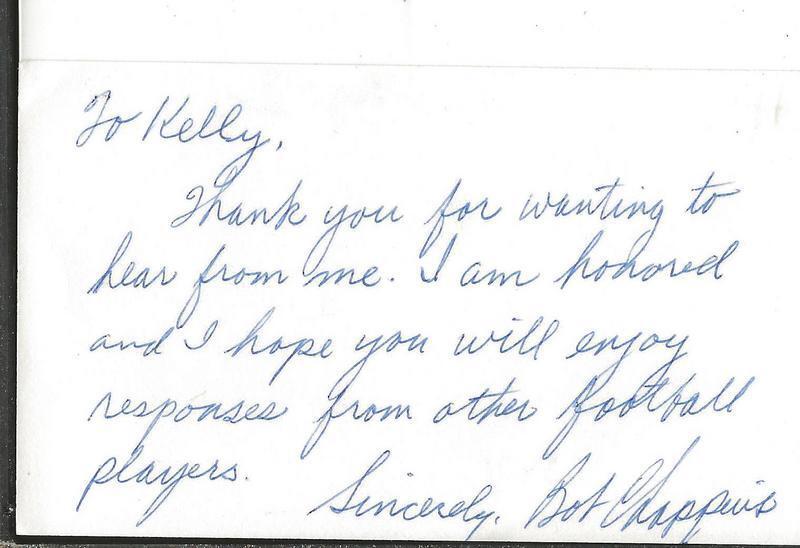 To Kelly,
Thank you for wanting to
hear from me. I am honored
and I hope you will enjoy
responses from other football
players.
Sincerely, Bob Chappuis